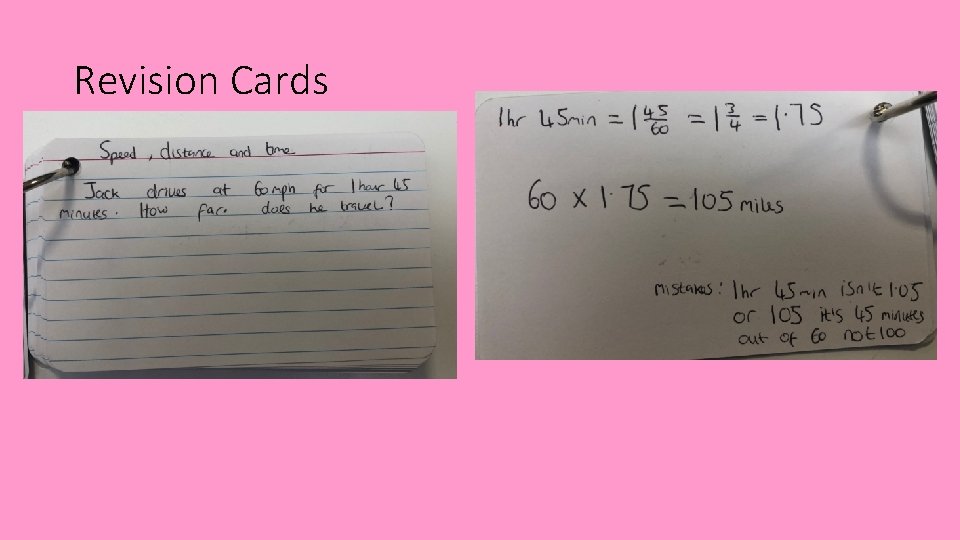 Revision Cards
Speed, distance and time
Jack drives at 60mph for 1 hour 45
minutes. How far does he travel?
1hr 45min = 1 45/60 = 1 3/4 = 1.75
60 x 1.75 = 105 miles
Mistakes: 1hr 45min isn't 1.05
or 105 it's 45 minutes
out of 60 not 100